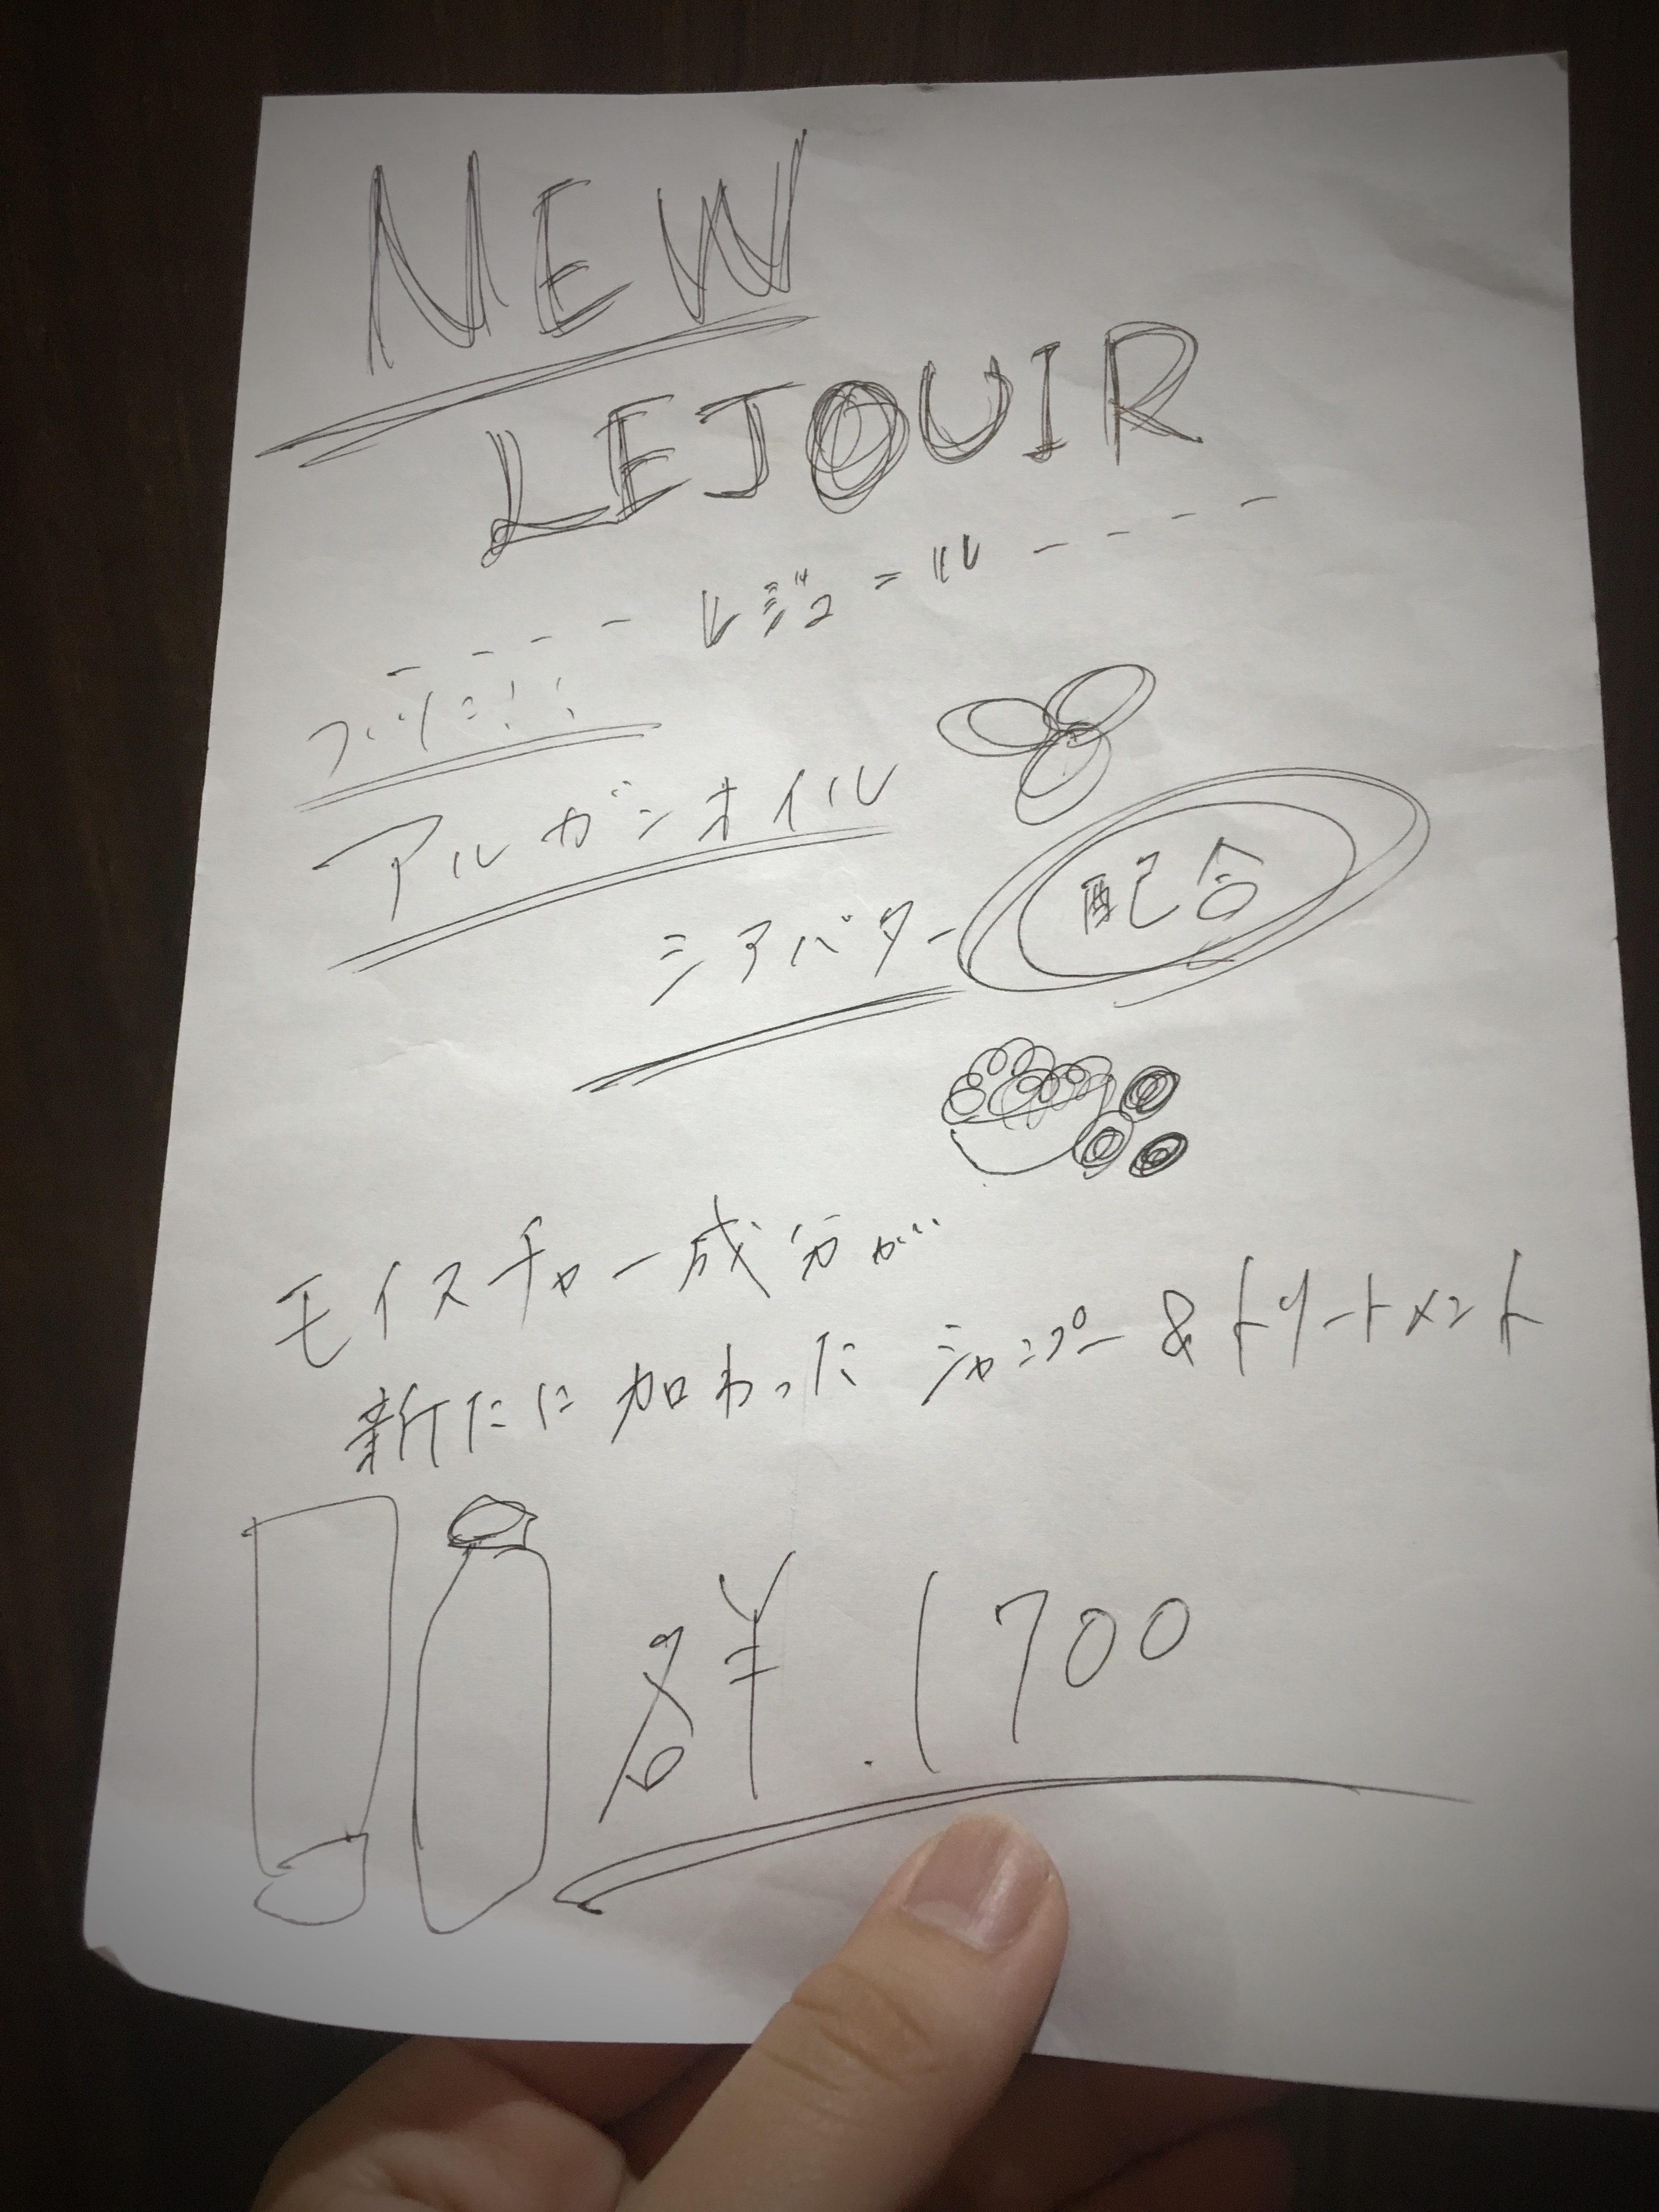 NEW
LEJOUIR
---- レジュール ----
アルガンオイル
シアバター 配合
モイスチャー成分が
新たに加わった シャンプー & トリートメント
各 ¥.1700